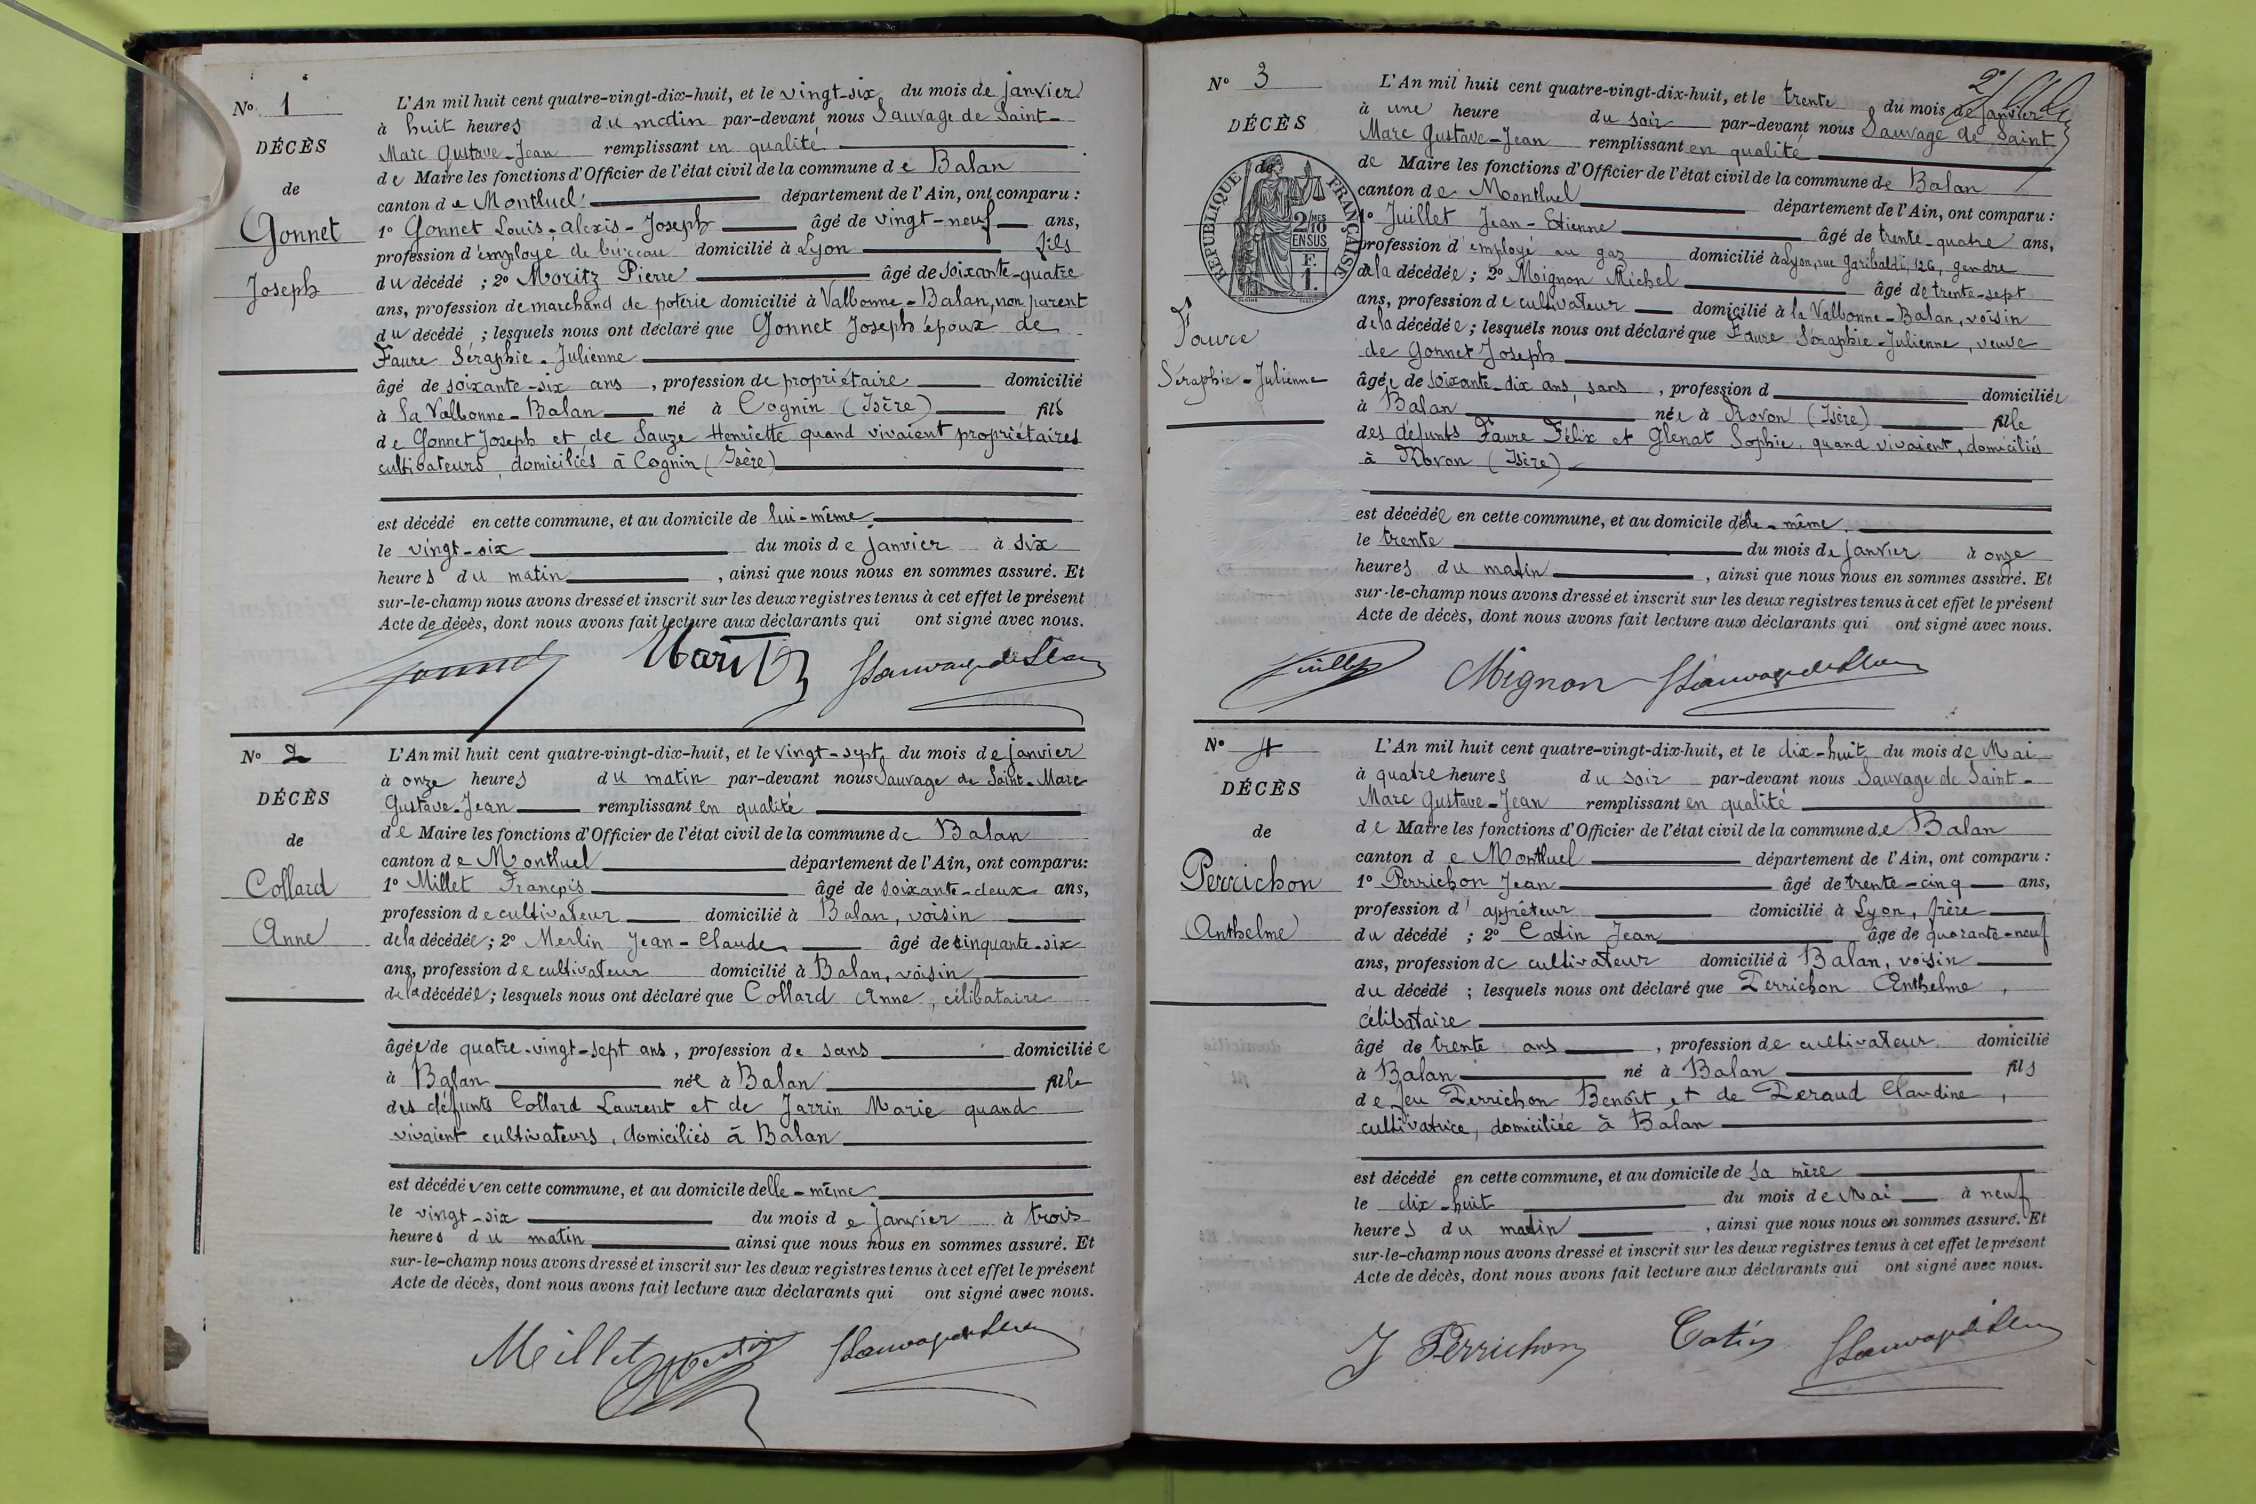 No 1
DÉCÈS
de
Gonnet
Joseph
L'An mil huit cent quatre-vingt-dix-huit, et le vingt-six du mois de janvier
à huit heures du matin par-devant nous Sauvage de Saint-
Marc Gustave-Jean remplissant en qualité
de Maire les fonctions d'Officier de l'état civil de la commune de Balan
canton de Montluel département de l'Ain, ont comparu :
1º Gonnet Louis-Alexis-Joseph âgé de vingt-neuf ans,
profession d'employé de bureau domicilié à Lyon fils
du décédé ; 2º Moritz Pierre âgé de soixante-quatre
ans, profession de marchand de poterie domicilié à Valbonne-Balan, non parent
du décédé ; lesquels nous ont déclaré que Gonnet Joseph époux de
Faure Séraphie-Julienne
âgé de soixante-six ans, profession de propriétaire domicilié
à la Valbonne-Balan né à Cognin (Isère) fils
de Gonnet Joseph et de Sauze Henriette quand vivaient propriétaires
cultivateurs, domiciliés à Cognin (Isère)
est décédé en cette commune, et au domicile de lui-même
le vingt-six du mois de janvier à six
heures du matin, ainsi que nous nous en sommes assuré. Et
sur-le-champ nous avons dressé et inscrit sur les deux registres tenus à cet effet le présent
Acte de décès, dont nous avons fait lecture aux déclarants qui ont signé avec nous.
Gonnet Moritz GSauvagedeStMarc
No 2
DÉCÈS
de
Collard
Anne
L'An mil huit cent quatre-vingt-dix-huit, et le vingt-sept du mois de janvier
à onze heures du matin par-devant nous Sauvage de Saint-Marc
Gustave-Jean remplissant en qualité
de Maire les fonctions d'Officier de l'état civil de la commune de Balan
canton de Montluel département de l'Ain, ont comparu:
1º Millet François âgé de soixante-deux ans,
profession de cultivateur domicilié à Balan, voisin
de la décédée; 2º Merlin Jean-Claude âgé de cinquante-six
ans, profession de cultivateur domicilié à Balan, voisin
de la décédée; lesquels nous ont déclaré que Collard Anne, célibataire
âgée de quatre-vingt-sept ans, profession de sans domiciliée
à Balan née à Balan fille
des défunts Collard Laurent et de Jarrin Marie quand
vivaient cultivateurs, domiciliés à Balan
est décédée en cette commune, et au domicile d'elle-même
le vingt-six du mois de janvier à trois
heures du matin ainsi que nous nous en sommes assuré. Et
sur-le-champ nous avons dressé et inscrit sur les deux registres tenus à cet effet le présent
Acte de décès, dont nous avons fait lecture aux déclarants qui ont signé avec nous.
Millet Merlin GSauvagedeStMarc
No 3
DÉCÈS
de
RÉPUBLIQUE FRANÇAISE
2/10 MES
EN SUS
F.
1.
Faure
Séraphie-Julienne
L'An mil huit cent quatre-vingt-dix-huit, et le trente du mois de janvier
à une heure du soir par-devant nous Sauvage de Saint
Marc Gustave-Jean remplissant en qualité
de Maire les fonctions d'Officier de l'état civil de la commune de Balan
canton de Montluel département de l'Ain, ont comparu :
1º Juillet Jean-Etienne âgé de trente-quatre ans,
profession d'employé au gaz domicilié à Lyon, rue Garibaldi, 126, gendre
de la décédée ; 2º Mignon Michel âgé de trente-sept
ans, profession de cultivateur domicilié à la Valbonne-Balan, voisin
de la décédée; lesquels nous ont déclaré que Faure Séraphie-Julienne, veuve
de Gonnet Joseph
âgée de soixante-dix ans, sans, profession d domiciliée
à Balan née à Rovon (Isère) fille
des défunts Faure Félix et Glenat Sophie quand vivaient, domiciliés
à Rovon (Isère)
est décédée en cette commune, et au domicile d'elle-même
le trente du mois de janvier à onze
heures du matin, ainsi que nous nous en sommes assuré. Et
sur-le-champ nous avons dressé et inscrit sur les deux registres tenus à cet effet le présent
Acte de décès, dont nous avons fait lecture aux déclarants qui ont signé avec nous.
Juillet Mignon GSauvagedeStMarc
No 4
DÉCÈS
de
Perrichon
Anthelme
L'An mil huit cent quatre-vingt-dix-huit, et le dix-huit du mois de Mai
à quatre heures du soir par-devant nous Sauvage de Saint-
Marc Gustave-Jean remplissant en qualité
de Maire les fonctions d'Officier de l'état civil de la commune de Balan
canton de Montluel département de l'Ain, ont comparu :
1º Perrichon Jean âgé de trente-cinq ans,
profession d'apprêteur domicilié à Lyon, frère
du décédé ; 2º Catin Jean âgé de quarante-neuf
ans, profession de cultivateur domicilié à Balan, voisin
du décédé ; lesquels nous ont déclaré que Perrichon Anthelme,
célibataire
âgé de trente ans, profession de cultivateur domicilié
à Balan né à Balan fils
de feu Perrichon Benoît et de Peraud Claudine,
cultivatrice, domiciliée à Balan
est décédé en cette commune, et au domicile de sa mère
le dix-huit du mois de Mai à neuf
heures du matin, ainsi que nous nous en sommes assuré. Et
sur-le-champ nous avons dressé et inscrit sur les deux registres tenus à cet effet le présent
Acte de décès, dont nous avons fait lecture aux déclarants qui ont signé avec nous.
J Perrichon Catin GSauvagedeStMarc